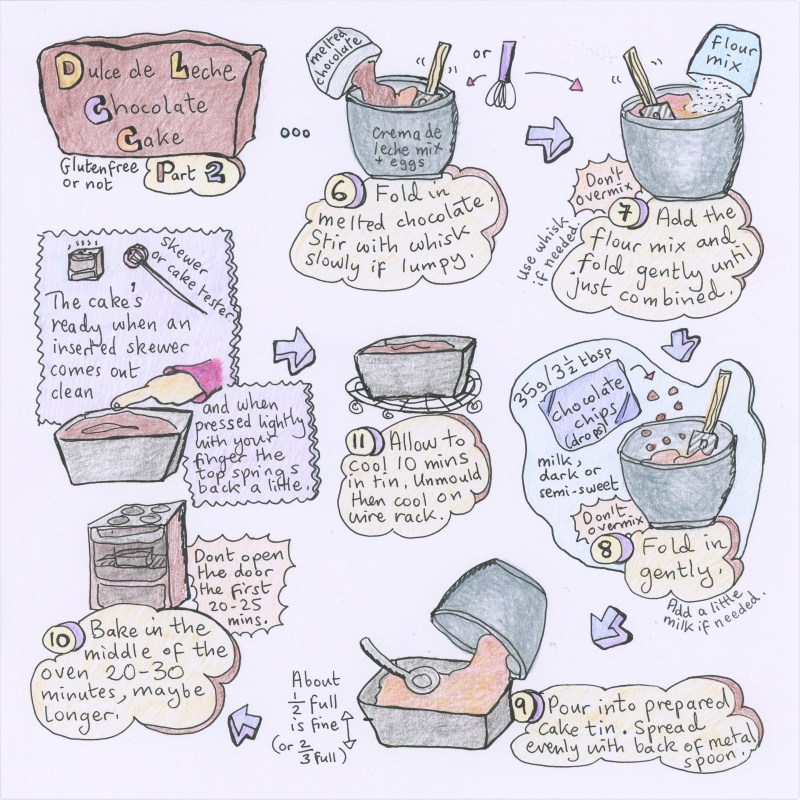 Dulce de Leche
Chocolate
Cake
Glutenfree
or not
Part 2
melted
chocolate
Crema de
leche mix
+ eggs
or
6 Fold in
melted chocolate.
Stir with whisk
slowly if lumpy.
flour
mix
Don't
overmix
use whisk
if needed.
7 Add the
flour mix and
fold gently until
just combined.
35g/3½ tbsp
chocolate
chips
(drops)
milk,
dark or
semi-sweet
Don't
overmix
8 Fold in
gently.
Add a little
milk if needed.
9 Pour into prepared
cake tin. Spread
evenly with back of metal
spoon.
About
½ full
is fine
(or ⅔ full)
10 Bake in the
middle of the
oven 20-30
minutes, maybe
longer.
Dont open
the door
the first
20-25
mins.
skewer
or cake tester
The cake's
ready when an
inserted skewer
comes out
clean
and when
pressed lightly
with your
finger the
top springs
back a little.
11 Allow to
cool 10 mins
in tin. Unmould
then cool on
wire rack.